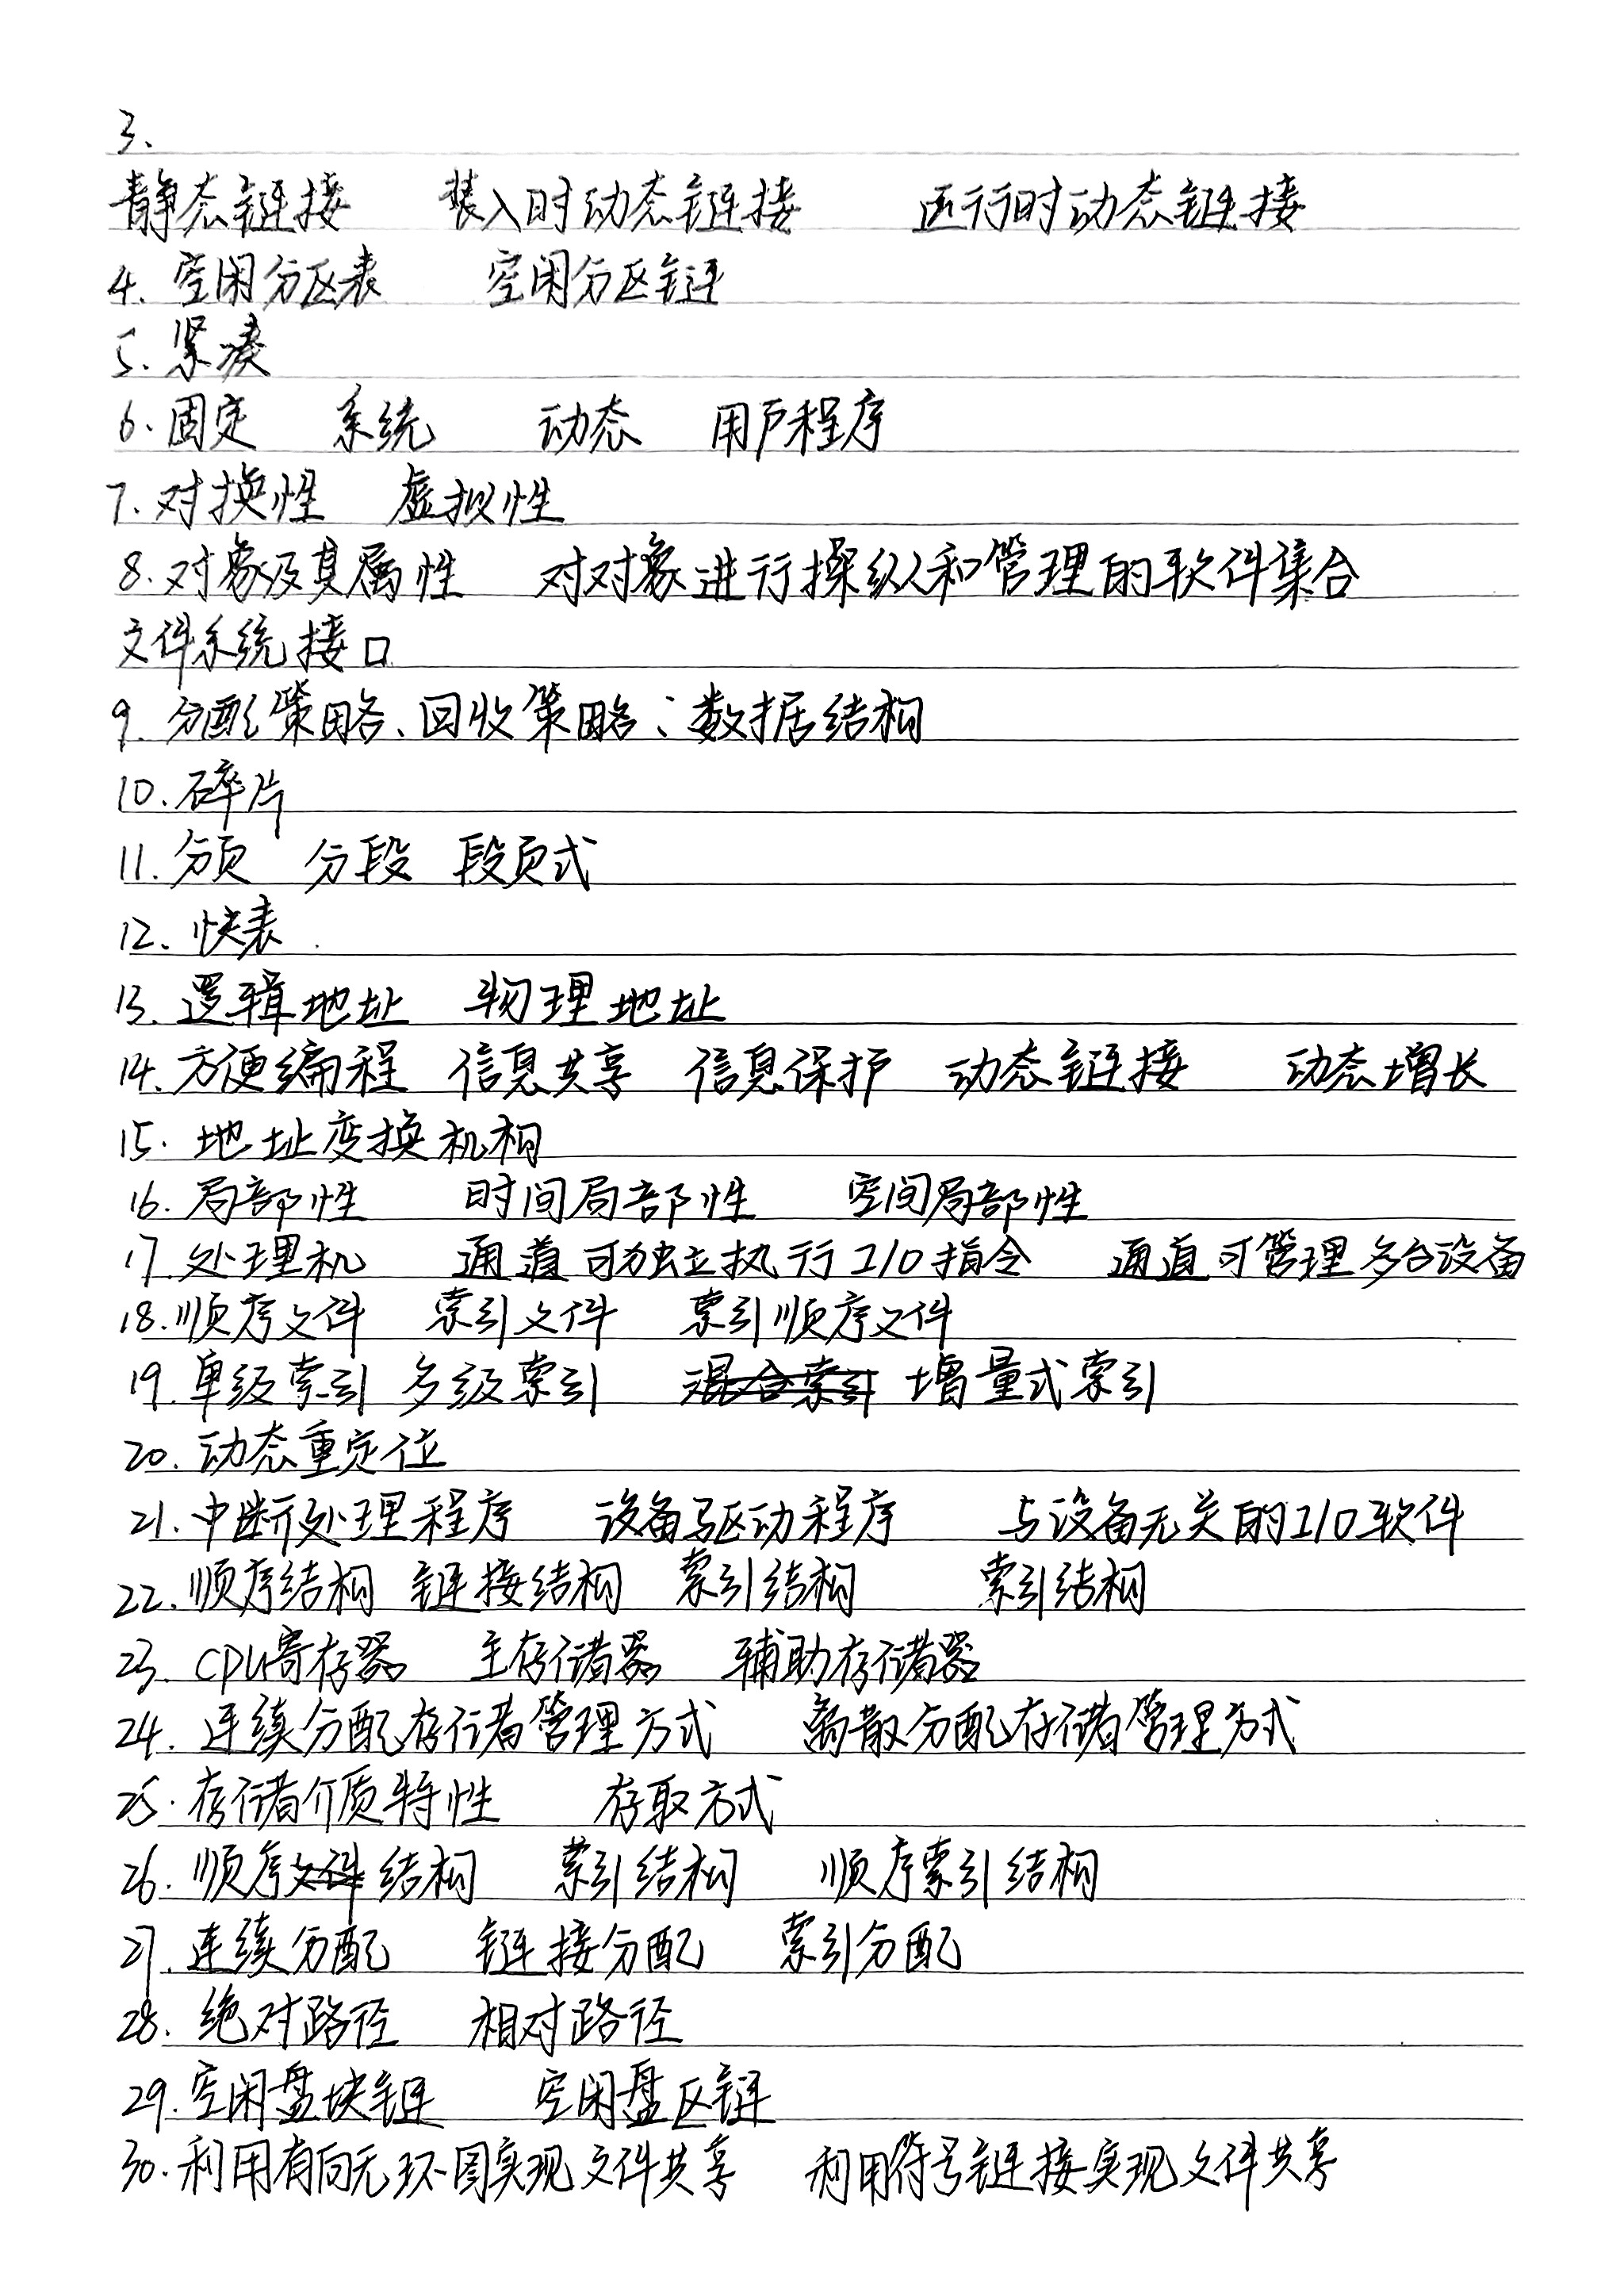 3.
静态链接 装入时动态链接 运行时动态链接
4. 空闲分区表 空闲分区链
5. 紧凑
6. 固定 系统 动态 用户程序
7. 对换性 虚拟性
8. 对象及其属性 对对象进行操纵和管理的软件集合
文件系统接口
9. 分配策略、回收策略；数据结构
10. 碎片
11. 分页 分段 段页式
12. 快表
13. 逻辑地址 物理地址
14. 方便编程 信息共享 信息保护 动态链接 动态增长
15. 地址变换机构
16. 局部性 时间局部性 空间局部性
17. 处理机 通道可独立执行I/O指令 通道可管理多台设备
18. 顺序文件 索引文件 索引顺序文件
19. 单级索引 多级索引 混合索引 增量式索引
20. 动态重定位
21. 中断处理程序 设备驱动程序 与设备无关的I/O软件
22. 顺序结构 链接结构 索引结构 索引结构
23. CPU寄存器 主存储器 辅助存储器
24. 连续分配存储管理方式 离散分配存储管理方式
25. 存储介质特性 存取方式
26. 顺序文件结构 索引结构 顺序索引结构
27. 连续分配 链接分配 索引分配
28. 绝对路径 相对路径
29. 空闲盘块链 空闲盘区链
30. 利用有向无环图实现文件共享 利用符号链接实现文件共享